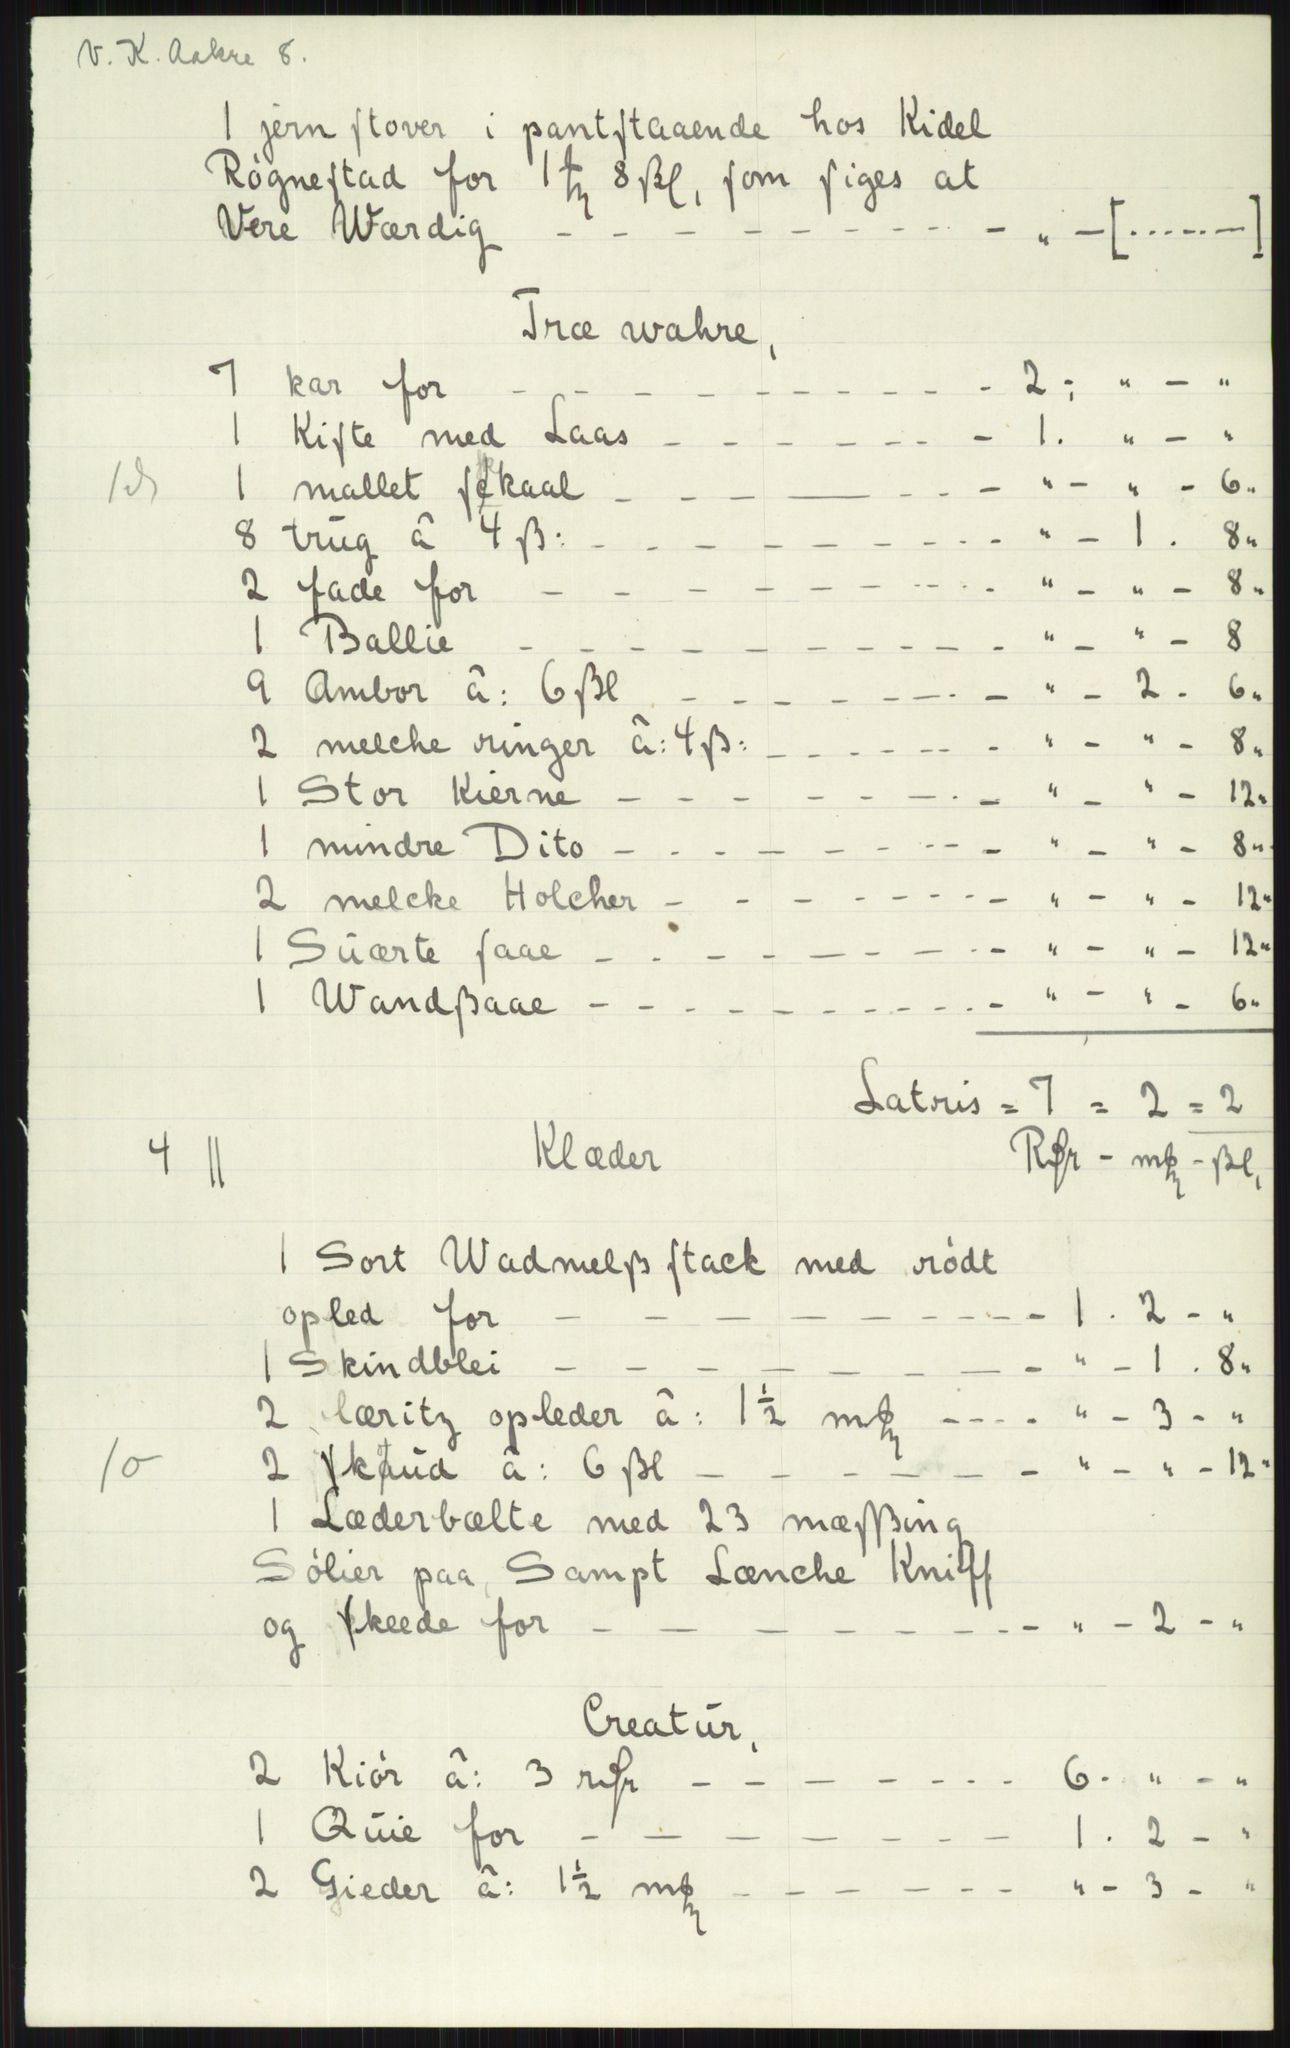 V. K. Aakre 8.
1 jern ſtover i pantſtaaende hos Kidel
Rógneſtad for 1 ꝳ 8 ßl, ſom ſiges at
Vere Wærdig - - - - - - - - - - „ - [.......-]
Træ wahre,
7 kar for - - - - - - - - - 2 ; „ - „
1 Kiſte med Laas - - - - - - - 1. „ - „
1 mallet kaal - - - - - - „ - „ - 6„
8 trüg â 4 ß: - - - - - - - - - „ - 1 . 8„
2 fade for - - - - - - - - - „ - „ - 8„
1 Ballie - - - - - - - - - - „ - „ - 8
9 Ambor â: 6 ßl - - - - - - - „ - 2 - 6„
2 melche ringer â: 4 ß: - - - - - - - „ - „ - 8„
1 Stor Kierne - - - - - - - - - „ - „ - 12„
1 mindre Dito - - - - - - - - - „ - „ - 8„
2 melcke Holcher - - - - - - - - „ - „ - 12„
1 Süærte ſaae - - - - - - - - - „ - „ - 12„
1 Wandßaae - - - - - - - - - - „ - „ - 6„
Latris = 7 = 2 = 2
4 || Klæder Rdr - mꝳ - ßl,
1 Sort Wadmelß ſtack med ródt
opled for - - - - - - - - - 1 . 2 - „
1 Skindblei - - - - - - - - „ - 1 . 8„
2 læritz opleder â: 1½ mꝳ - - - - „ - 3 - „
2 â: 6 ßl - - - - - - - „ - „ - 12„
1 Læderbælte med 23 mæſßing
Sólier paa, Sampt Lænche Kniff
og ſkeede for - - - - - - - - - „ - 2 - „
Creatür,
2 Kiór â: 3 rdr - - - - - - - - 6 - „ - „
1 Qüie for - - - - - - - - 1 . 2 - „
2 Gieder â: 1½ mꝳ - - - - - - - „ - 3 - „